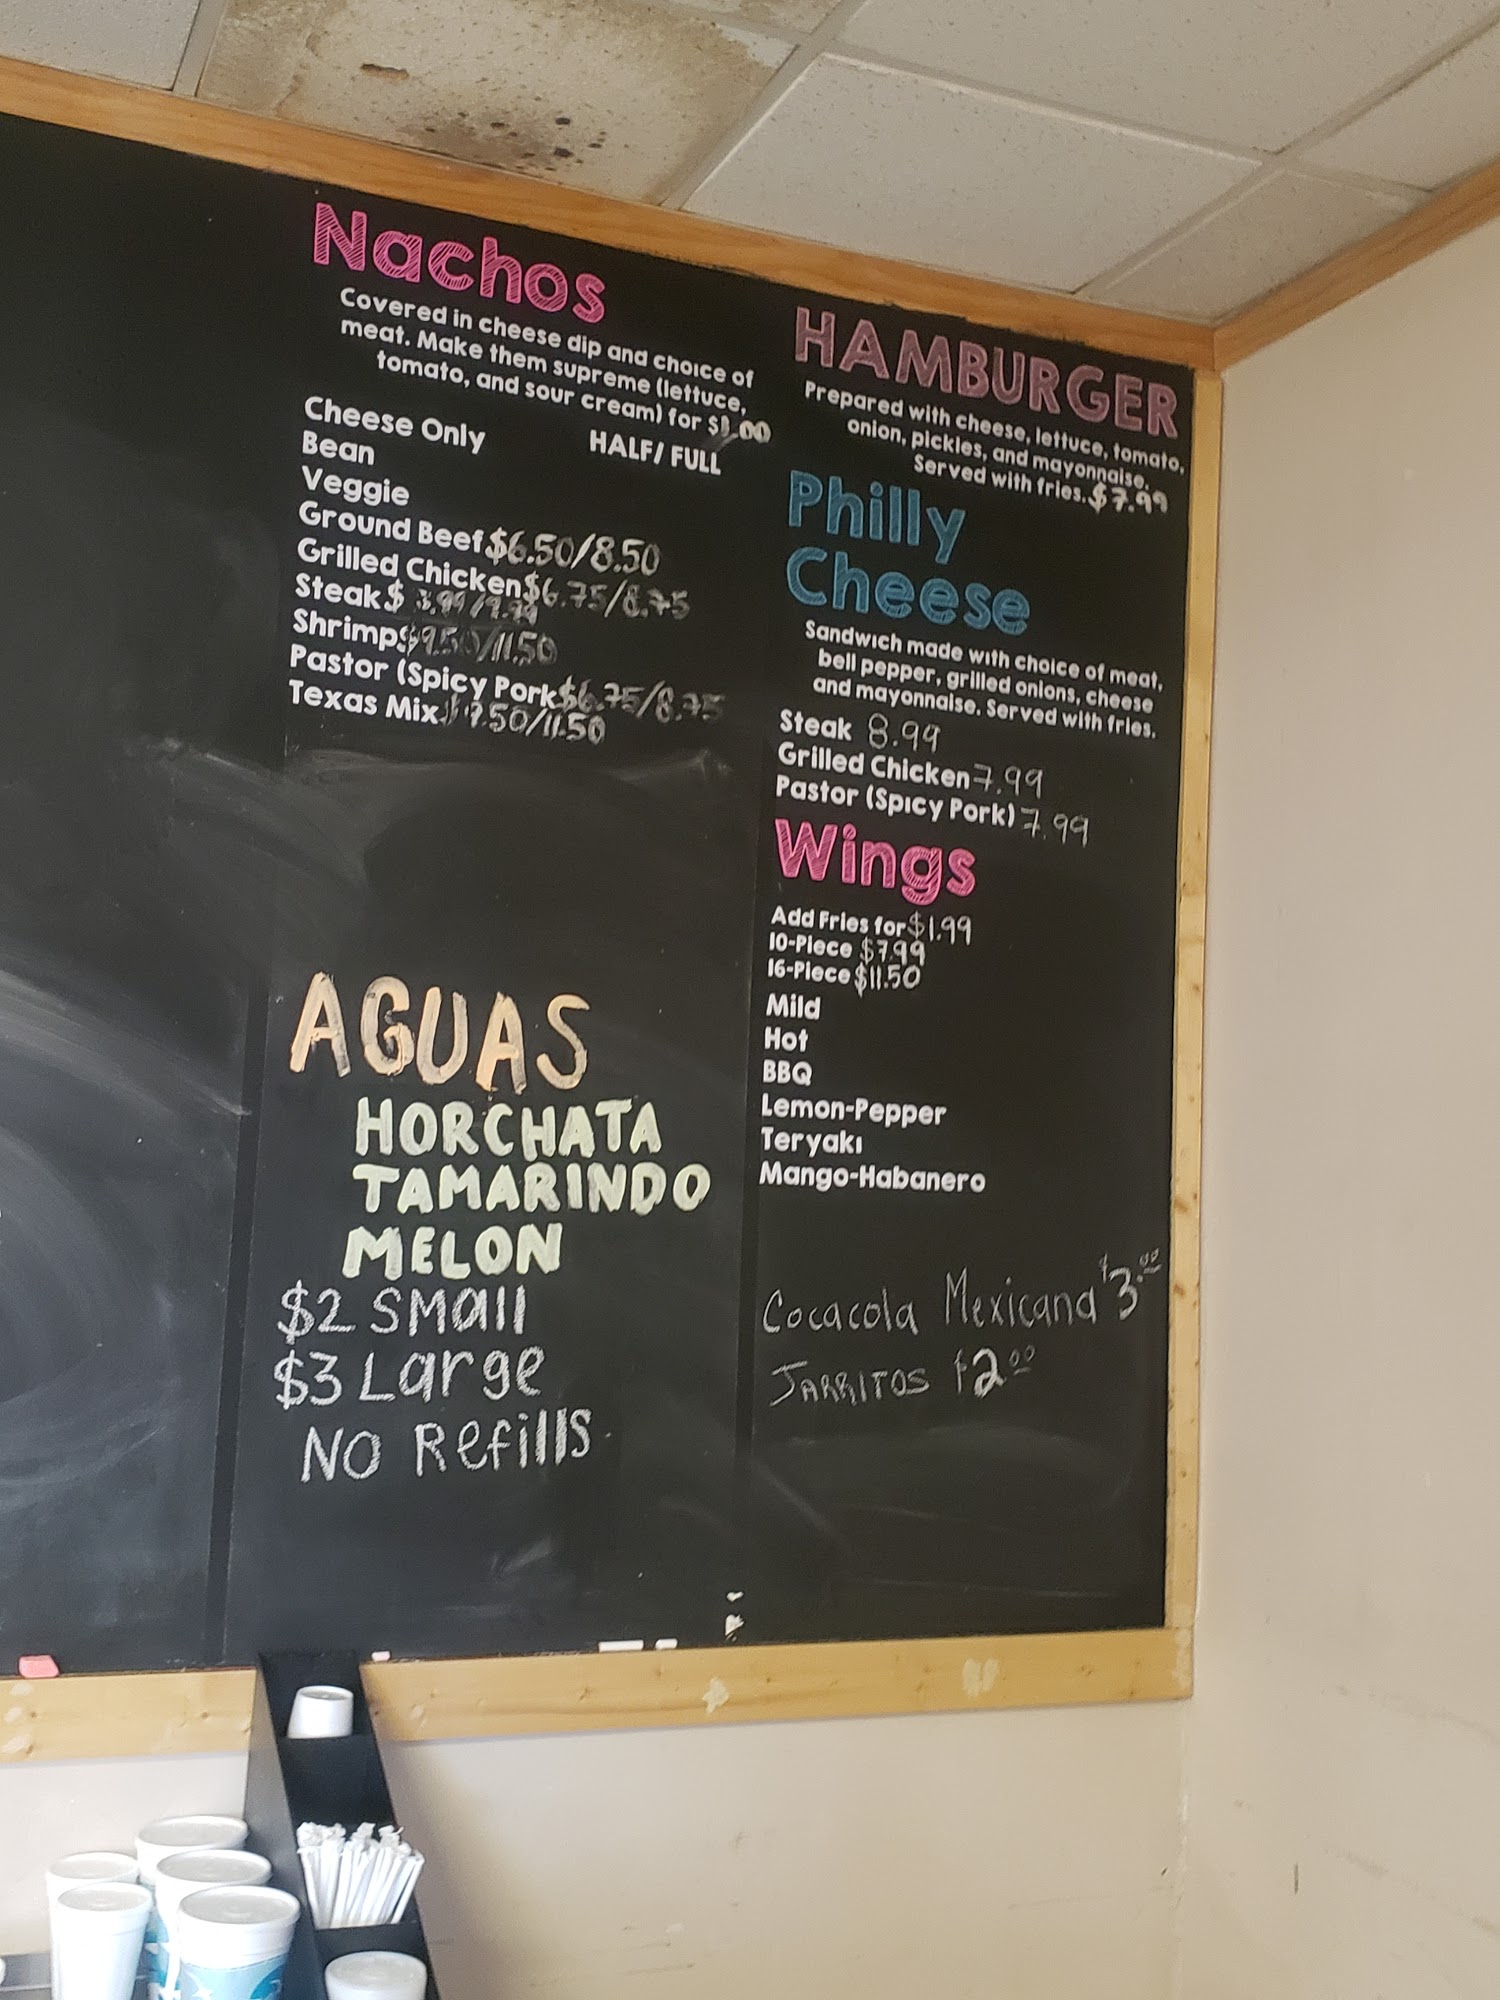 Nachos
Covered in cheese dip and choice of
meat. Make them supreme (lettuce,
tomato, and sour cream) for $1.00
HALF/ FULL
Cheese Only
Bean
Veggie
Ground Beef $6.50/8.50
Grilled Chicken $6.75/8.75
Steak $
Shrimp $9.50/11.50
Pastor (Spicy Pork $6.75/8.75
Texas Mix $9.50/11.50
AGUAS
HORCHATA
TAMARINDO
MELON
$2 Small
$3 Large
NO Refills
HAMBURGER
Prepared with cheese, lettuce, tomato,
onion, pickles, and mayonnaise.
Served with fries. $7.99
Philly
Cheese
Sandwich made with choice of meat,
bell pepper, grilled onions, cheese
and mayonnaise. Served with fries.
Steak 8.99
Grilled Chicken 7.99
Pastor (Spicy Pork) 7.99
Wings
Add Fries for $1.99
10-Piece $7.99
16-Piece $11.50
Mild
Hot
BBQ
Lemon-Pepper
Teryaki
Mango-Habanero
Cocacola Mexicana $3.00
JARRITOS $2.00